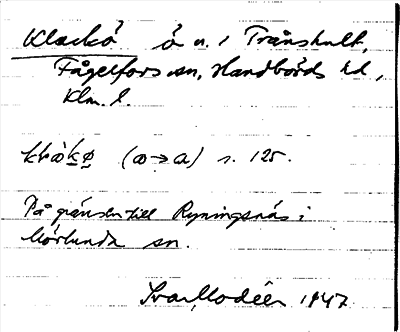 Klackö ö n. i Trånshult,
Fågelfors sn, Handbörds hd,
Klm. l.
(ɷ→a) s. 125.
På gränsen till Ryningsnäs i
Mörlunda sn.
Ivar Modéer 1947